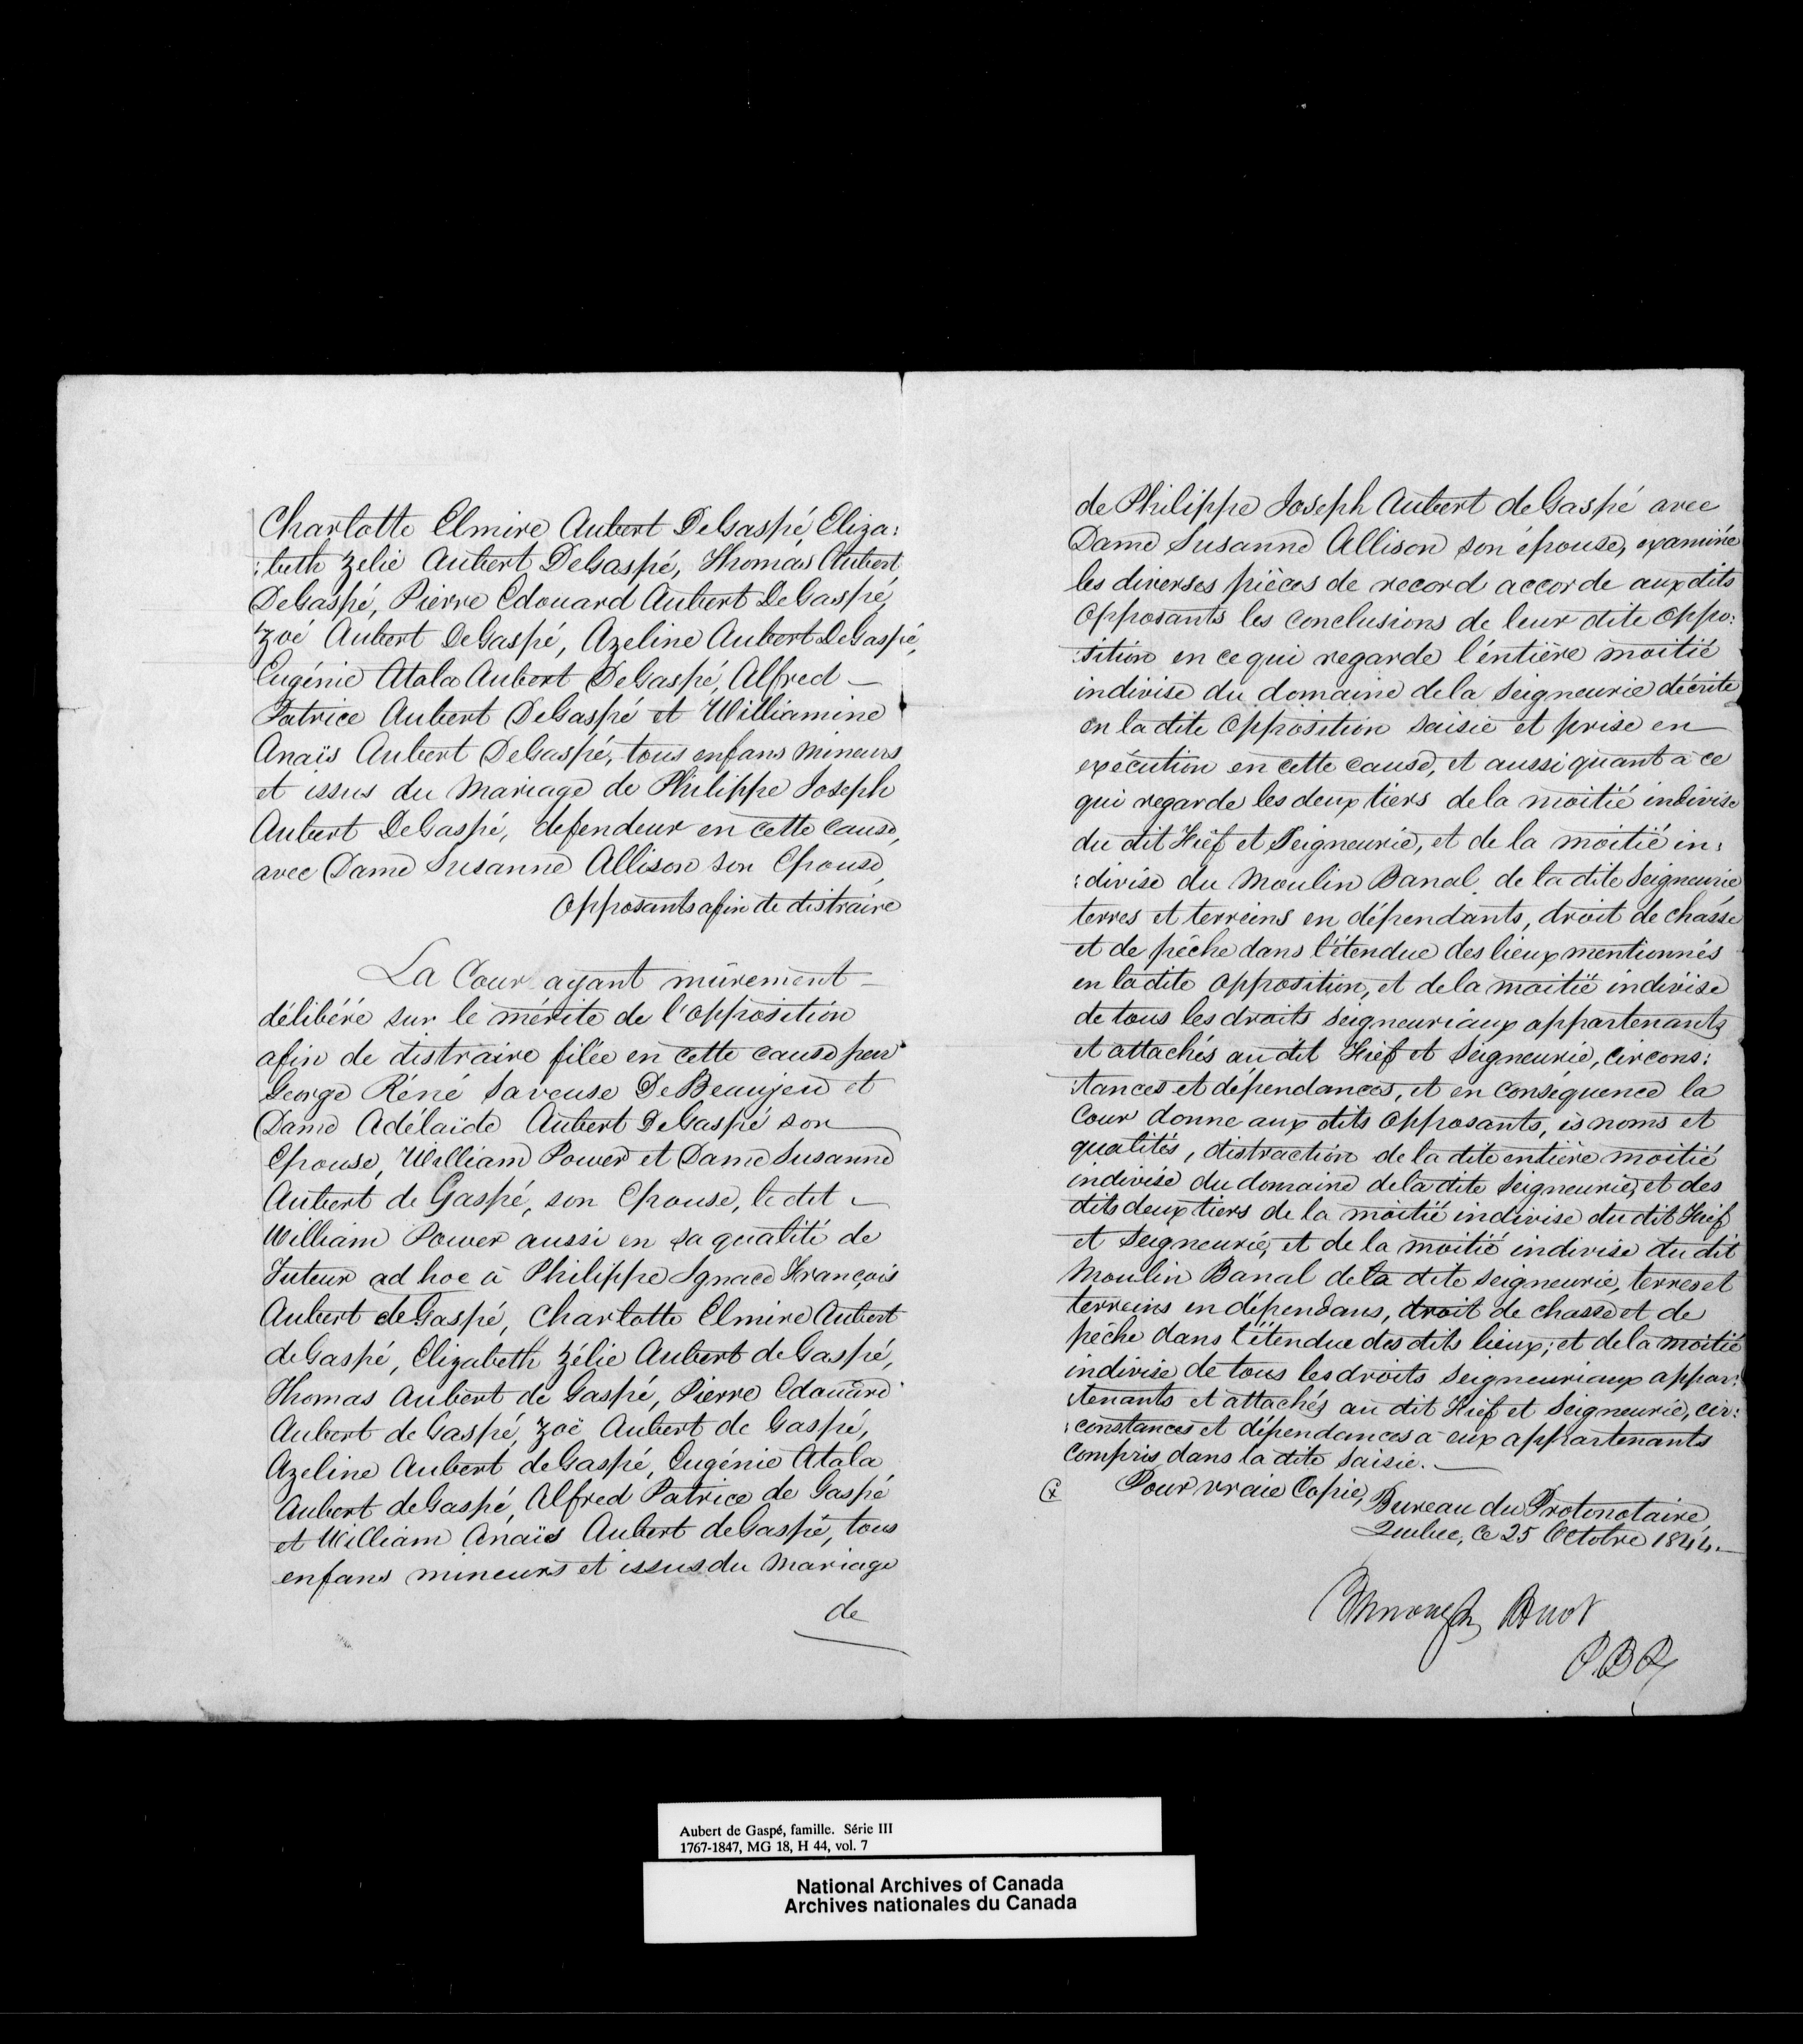 Charlotte Elmire Aubert DeGaspé, Eliza:
:beth Zelie Aubert DeGaspé, Thomas Aubert
DeGaspé, Pierre Edouard Aubert DeGaspé,
Zoé Aubert DeGaspé, Azeline Aubert DeGaspé,
Eugénie Atala Aubert DeGaspé, Alfred —
Patrice Aubert DeGaspé et Williamine
Anaïs Aubert DeGaspé, tous enfans mineurs
et issus du Mariage de Philippe Joseph
Aubert DeGaspé, defendeur en cette cause,
avec Dame Susanne Allison son Epouse,
Opposants afin de distraire
La Cour ayant mûrement —
délibéré sur le mérite de l'opposition
afin de distraire filée en cette cause par
George Réné Saveuse DeBeaujeu et
Dame Adélaïde Aubert DeGaspé son
Epouse, William Power et Dame Susanne
Aubert de Gaspé, son Epouse, le dit —
William Power aussi en sa qualité de
Tuteur ad hoc à Philippe Ignace François
Aubert de Gaspé, Charlotte Elmire Aubert
de Gaspé, Elizabeth Zélie Aubert de Gaspé,
Thomas Aubert de Gaspé, Pierre Edouard
Aubert de Gaspé, Zoë Aubert de Gaspé,
Azeline Aubert de Gaspé, Eugénie Atala
Aubert de Gaspé, Alfred Patrice de Gaspé
et William Anaïs Aubert de Gaspé, tous
enfans mineurs et issus du Mariage
de
de Philippe Joseph Aubert de Gaspé avec
Dame Susanne Allison son épouse, examiné
les diverses pièces de record accorde aux dits
Opposants les conclusions de leur dite oppo:
:sition en ce qui regarde l'éntière moitié
indivise du domaine de la Seigneurie décrite
en la dite Opposition saisie et prise en
exécution en cette cause, et aussi quant à ce
qui regarde les deux tiers de la moitié indivise
du dit Fief et Seigneurie, et de la moitié in:
:divise du Moulin Banal de la dite Seigneurie
terres et terreins en dépendants, droit de chasse
et de pêche dans l'étendue des lieux mentionnés
en la dite Opposition, et de la moitié indivise
de tous les droits Seigneuriaux appartenants
et attachés au dit Fief et Seigneurie, circons:
:tances et dépendances, et en conséquence la
Cour donne aux dits Opposants, ès noms et
qualités, distraction de la dite entière moitié
indivise du domaine de la dite Seigneurie, et des
dits deux tiers de la moitié indivise du dit Fief
et Seigneurie, et de la moitié indivise du dit
Moulin Banal de la dite Seigneurie, terres et
terreins en dépendans, droit de chasse et de
pêche dans l'étendue des dits lieux; et de la moitié
indivise de tous les droits Seigneuriaux appar:
:tenants et attachés au dit Fief et Seigneurie, cir:
:constances et dépendances à eux appartenants
compris dans la dite saisie. —
Pour vraie Copie,
Bureau du Protonotaire
Quebec, Ce 25 Octobre 1844. —
P.B.R.
Aubert de Gaspé, famille. Série III
1767-1847, MG 18, H 44, vol. 7
National Archives of Canada
Archives nationales du Canada